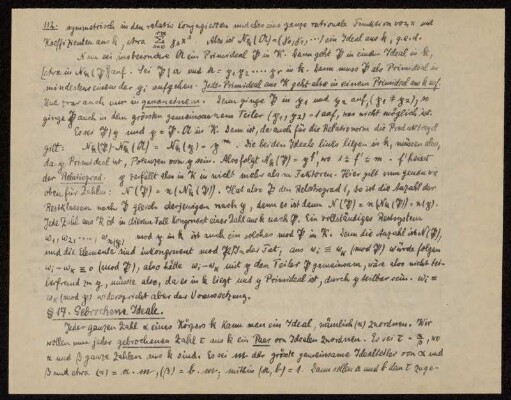 112. symmetrisch in den relativ Konjugierten und also eine ganze rationale Funktion von x mit
Koeffizienten aus k, etwa Also ist N_k(A) = (γ_0, γ_1, ...) ein Ideal aus k, q.e.d.
Nun sei insbesondere A ein Primideal P in K. Dann geht P in einem Ideal in k,
(etwa in N_k(P)) auf. Sei P|a und a = y_1 y_2 ... y_r in k. Dann muss P als Primideal in
mindestens einem der y_i aufgehen. Jedes Primideal aus K geht also in einem Primideal aus k auf.
Und zwar auch nur in genau einem. Denn ginge P in y_1 und y_2 auf, (y_1 ≠ y_2), so
ginge P auch in dem grössten gemeinsamen Teiler (y_1, y_2) = 1 auf, was nicht möglich ist.
Es sei P|y und y = P·A in K. Dann ist, da auch für die Relativnorm die Produktregel
gilt: N_k(P)·N_k(A) = N_k(y) = y^m. Die beiden Ideale links liegen in k, müssen also,
da y Primideal ist, Potenzen von y sein. Also folgt N_k(P) = y^f, wo 1 ≤ f ≤ m. f heisst
der Relativgrad. y zerfällt also in K in nicht mehr als m Faktoren. Hier gilt nun genau wie
oben für Zahlen: N(P) = n(N_k(P)). Hat also P den Relativgrad 1, so ist die Anzahl der
Restklassen nach P gleich derjenigen nach y, denn es ist dann N(P) = n(N_k(P)) = n(y).
Jede Zahl aus K ist in diesem Fall kongruent einer Zahl aus k nach P. Ein vollständiges Restsystem
w_1, w_2, ..., w_n(y) mod y in k ist auch ein solches mod P in K. Denn die Anzahl ist N(P),
und die Elemente sind inkongruent mod P. In der Tat, aus w_i ≡ w_k (mod P) würde folgen
w_i - w_k ≡ 0 (mod P), also hätte w_i - w_k mit y den Teiler P gemeinsam, wäre also nicht tei-
lerfremd zu y, müsste also, da es in k liegt und y Primideal ist, durch y teilbar sein. w_i ≡
w_k (mod y) widerspricht aber der Voraussetzung.
§ 17. Gebrochene Ideale.
Jeder ganzen Zahl α eines Körpers k kann man ein Ideal, nämlich (α) zuordnen. Wir
wollen nun jeder gebrochenen Zahl τ aus k ein Paar von Idealen zuordnen. Es sei τ = α/β, wo
α und β ganze Zahlen aus k sind. Es sei m der grösste gemeinsame Idealteiler von α und
β und etwa (α) = a·m, (β) = b·m, mithin (a, b) = 1. Dann sollen a und b dem τ zuge-